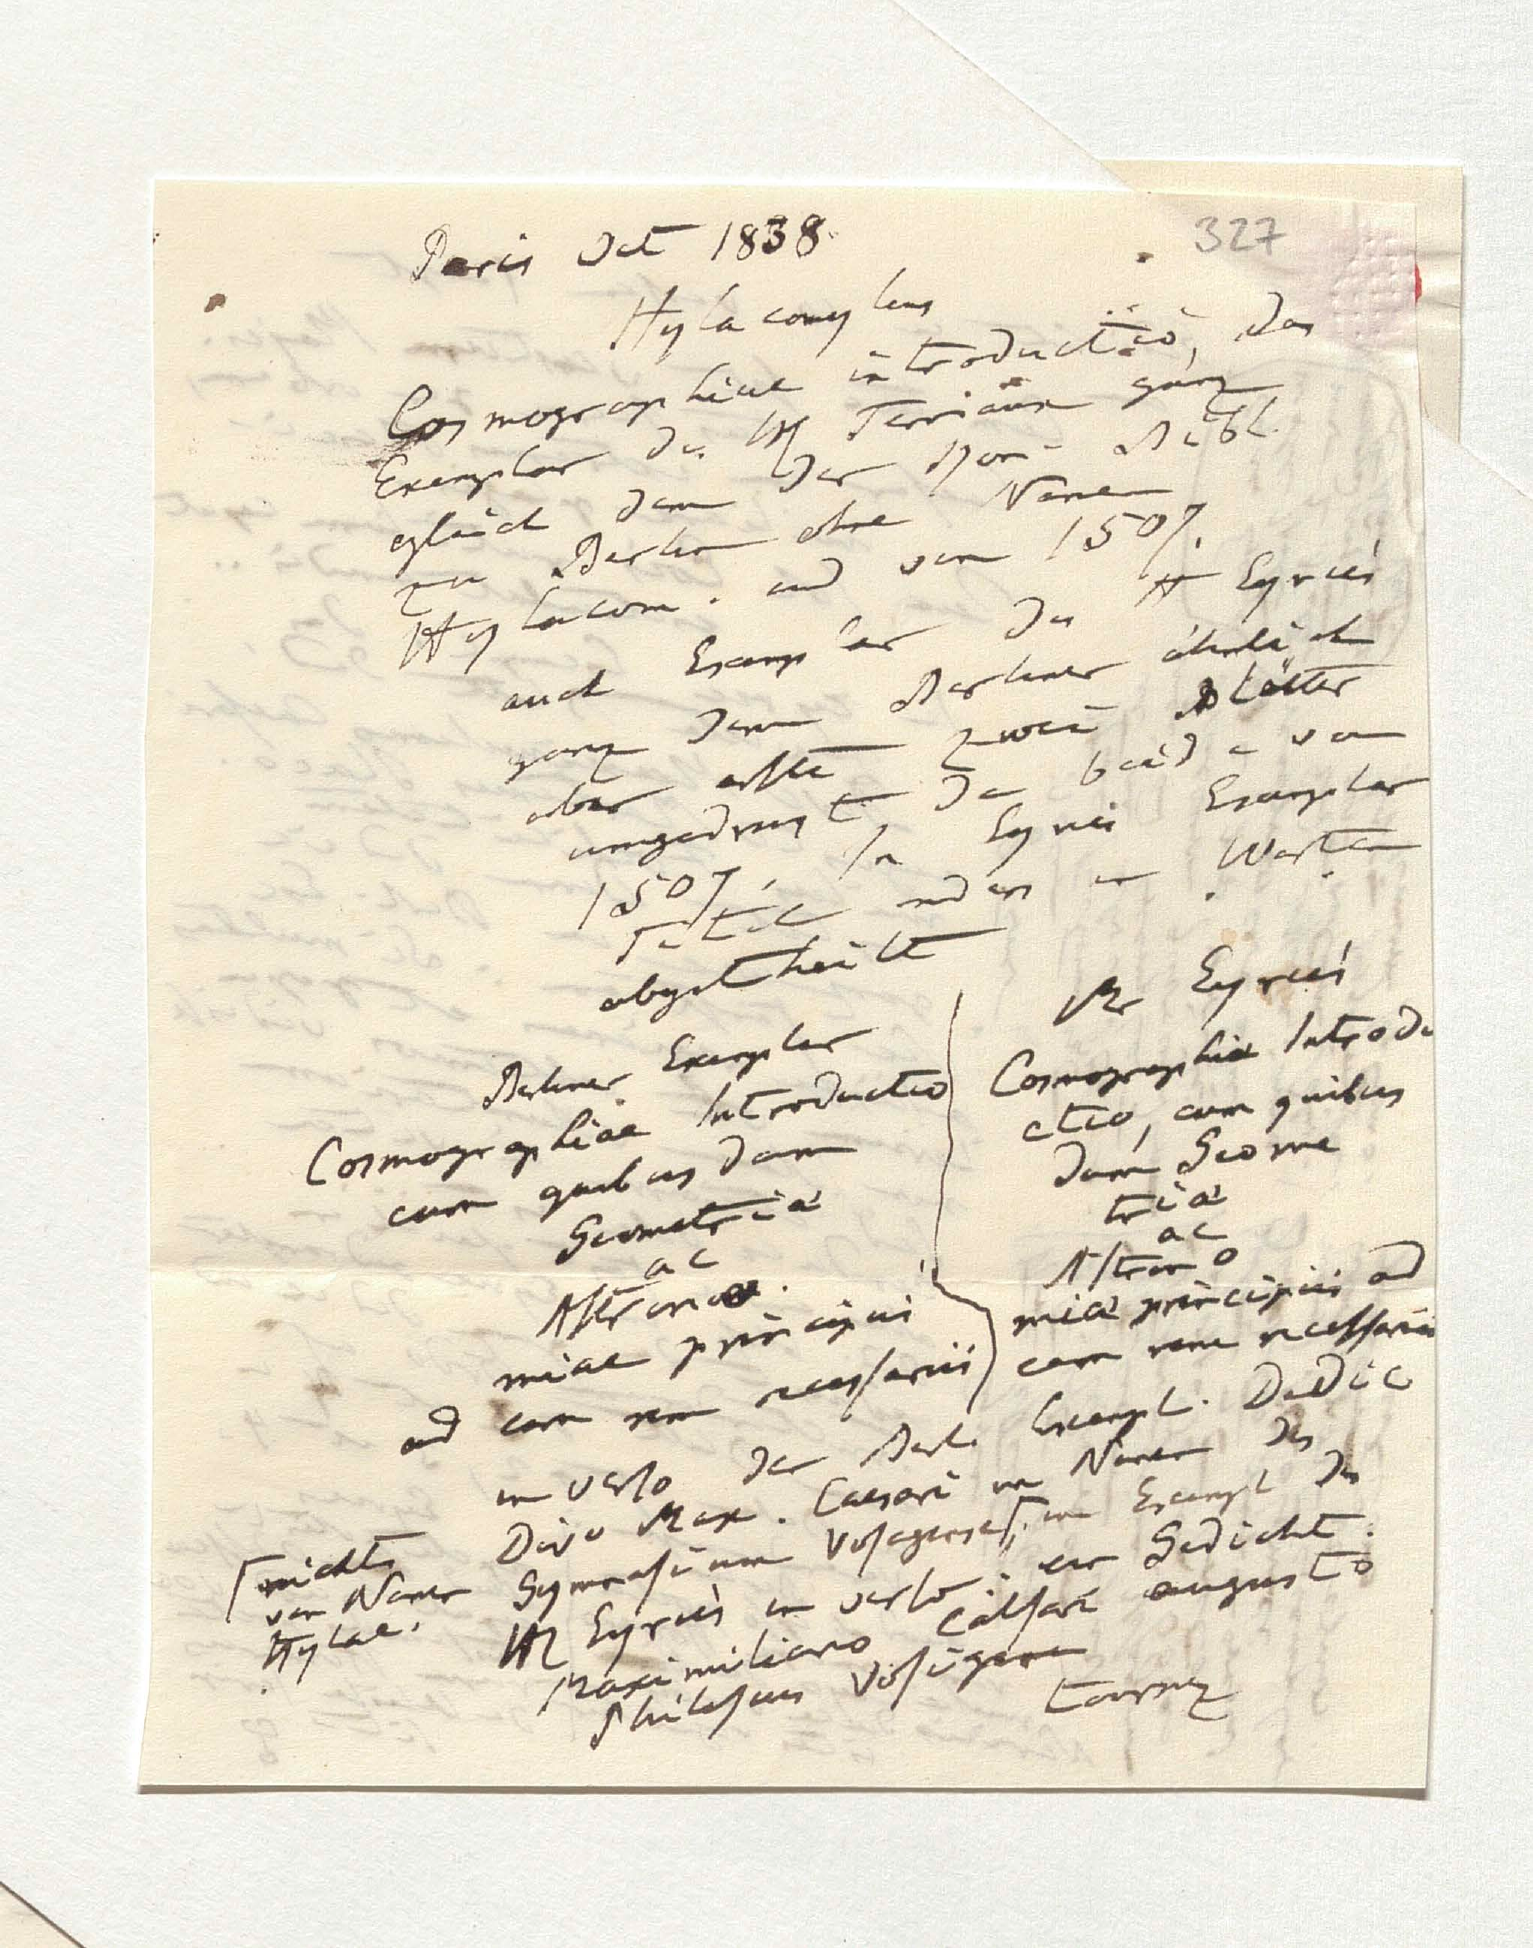 327
Paris Oct 1838.
Hylacomylus
Cosmographiae introductio, das
Exemplar des H Terriaux ganz
gleich dem der Kön. Bibl.
zu Berlin ohne Namen
Hylacom. und von 1507.
auch Exemplar des H Eyriès
ganz dem Berliner ähnlich
aber erste zwei Blätter
umgedruckt da beide von
1507. In Eyriès Exemplar
Titel anders in Worten
abgetheilt
Berliner Exemplar
Cosmographiae Introductio
cum quibusdam
Geometriae
ac
Astrono
miae principiis
ad eam rem necessariis
Mr Eyriès
Cosmographiae Introdu
ctio, cum quibus
dam Geome
triae
ac
Astrono
miae principiis ad
eam rem necessariis
in verso der Berl. Exempl. Dedic
Divo Max. Caesari im Namen des
Gymnasium Vosagense, im Exempl des
H Eyriès in verso: ein Gedicht:
Maximiliano Caesari augusto
Philesius Vosigena
[nichts
von Namen
Hylac.